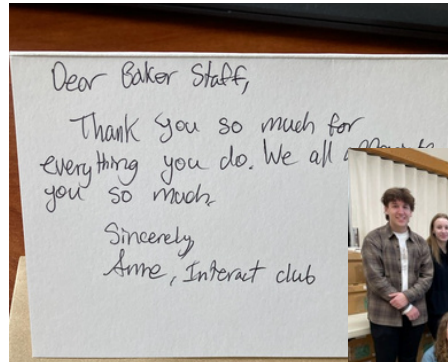 Dear Baker Staff,
Thank you so much for
everything you do. We all
you so much.
Sincerely,
Anne, Interact club